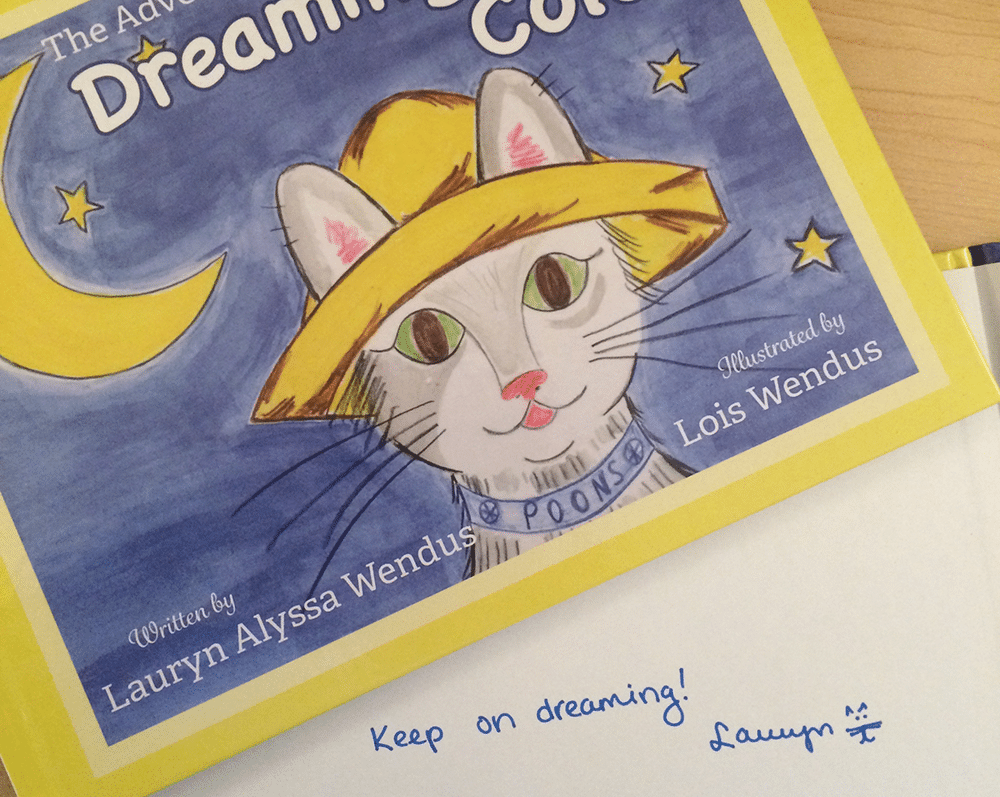 The
Dreaming
POONS
Illustrated by
Lois Wendus
Written by
Lauryn Alyssa Wendus
Keep on dreaming!
Lauryn